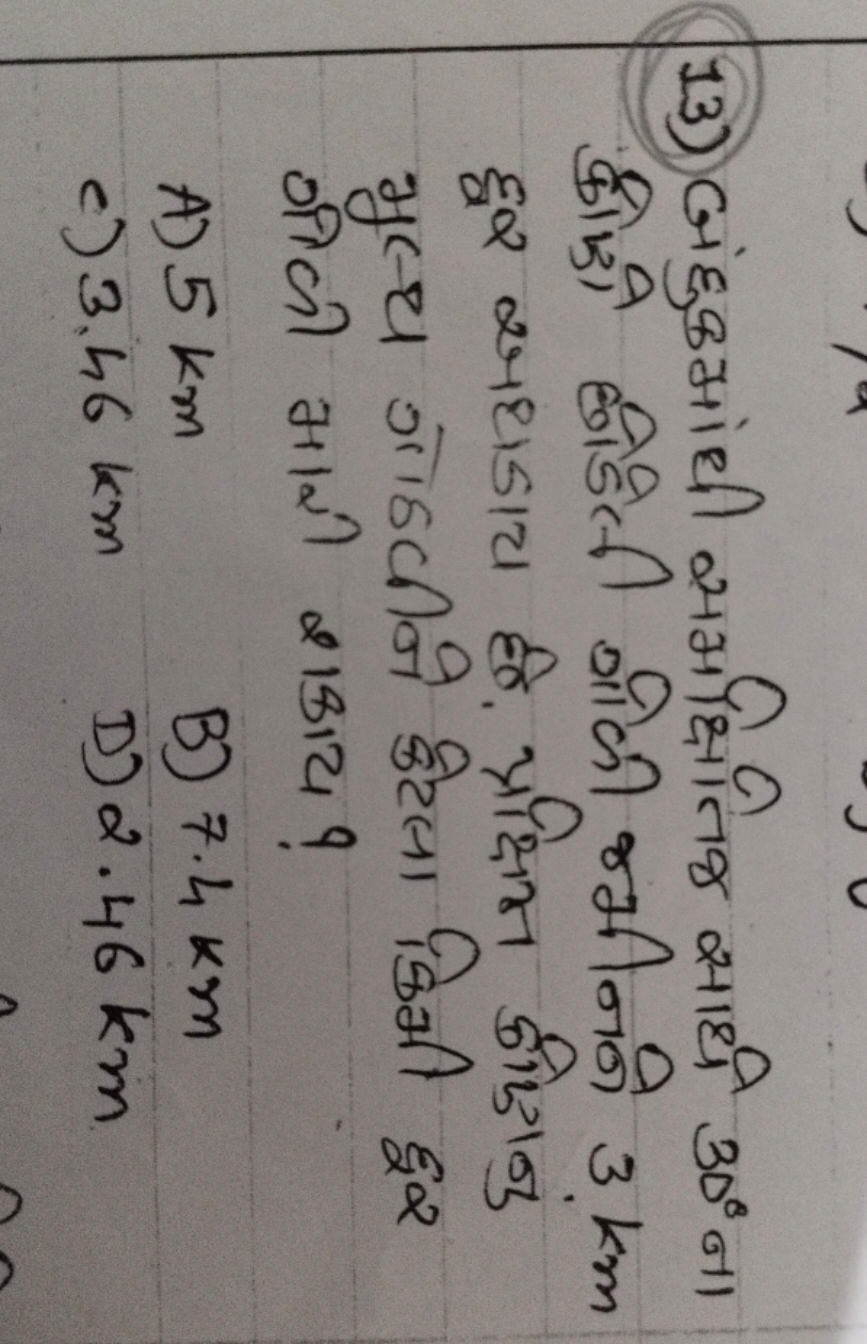 13) બંદુકમાંથી સમક્ષિતિજ સાથે 30° ના
કોણે છોડેલી ગોળી જમીનને 3 km
દુર અથડાય છે. પ્રક્ષિપ્ત કોણનું
મુલ્ય ગોઠવીને કેટલા કિમી દુર
ગોળી મારી શકાય?
A) 5 km B) 7.4 km
C) 3.46 km D) 2.46 km